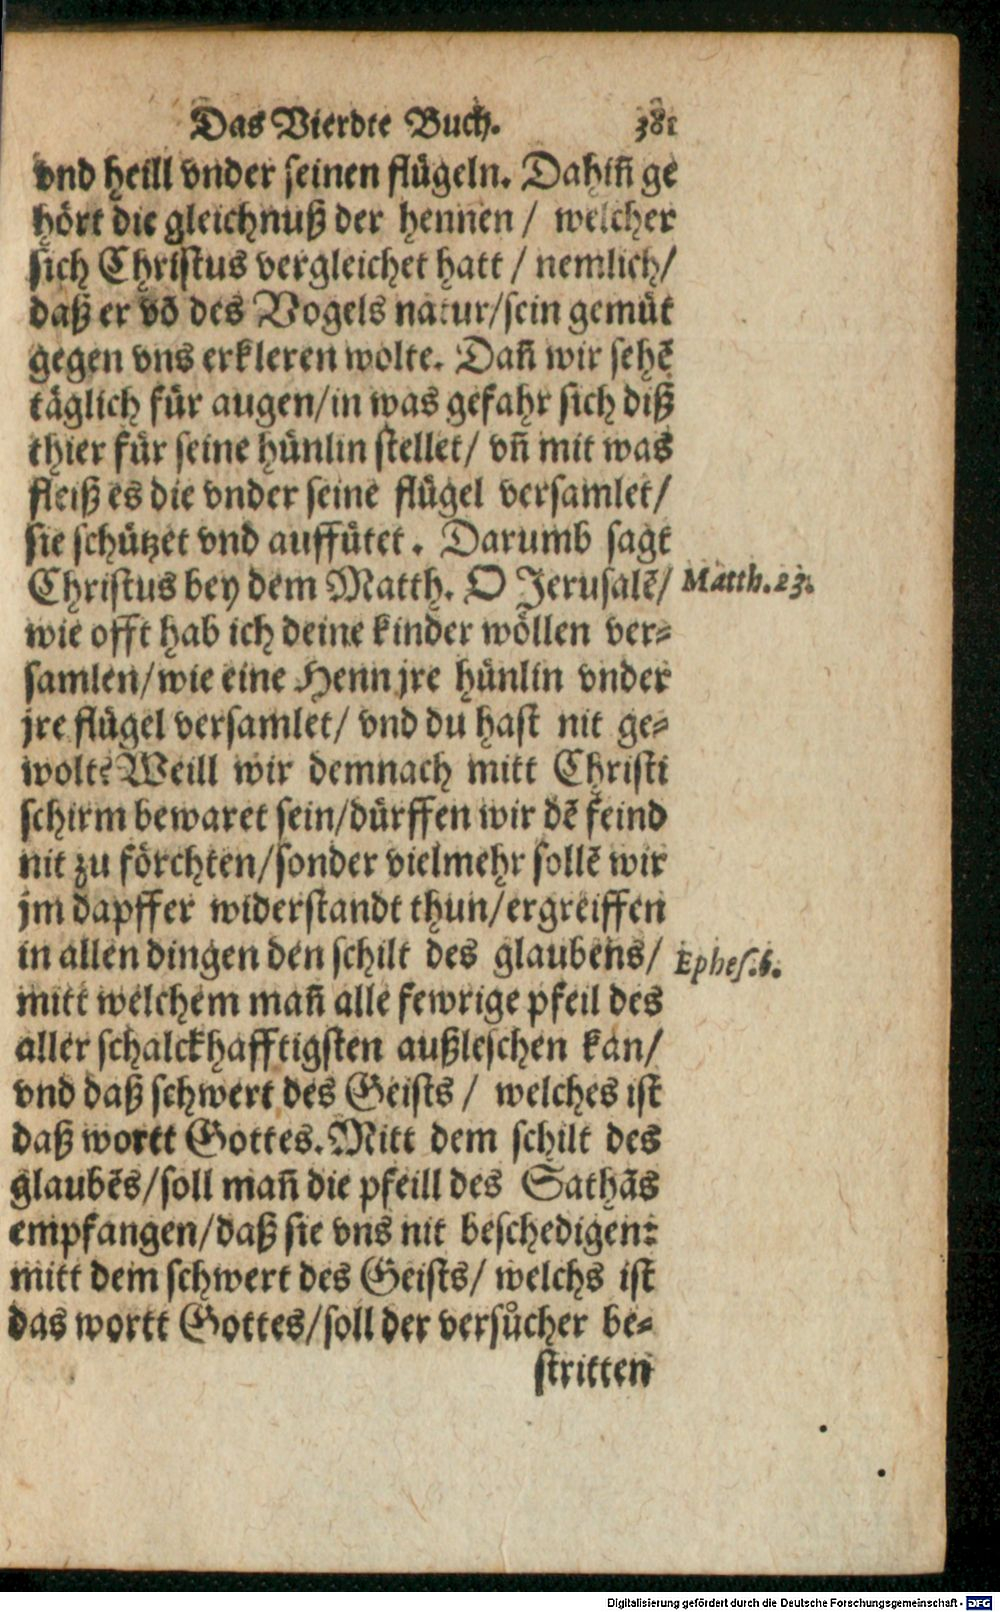 Das Vierdte Buch. 381
vnd heill vnder seinen flügeln. Dahin̄ ge
hört die gleichnuß der hennen / welcher
sich Christus vergleichet hatt / nemlich/
daß er vō des Vogels natur/sein gemüt
gegen vns erkleren wolte. Dan̄ wir sehē
täglich für augen/in was gefahr sich diß
thier für seine hünlin stellet/ vn̄ mit was
fleiß es die vnder seine flügel versamlet/
sie schützet vnd auffütet. Darumb sagt
Christus bey dem Matth. O Jerusalē/ Matth.23.
wie offt hab ich deine kinder wöllen ver-
samlen/wie eine Henn jre hünlin vnder
jre flügel versamlet/ vnd du hast nit ge-
wolt? Weill wir demnach mitt Christi
schirm bewaret sein/dürffen wir dē feind
nit zu förchten/sonder vielmehr sollē wir
jm dapffer widerstandt thun/ergreiffen
in allen dingen den schilt des glaubens/ Ephes.6.
mitt welchem man̄ alle fewrige pfeil des
aller schalckhafftigsten außleschen kan/
vnd daß schwert des Geists / welches ist
daß wortt Gottes. Mitt dem schilt des
glaubēs/soll man̄ die pfeill des Sathās
empfangen/daß sie vns nit beschedigen:
mitt dem schwert des Geists/ welchs ist
das wortt Gottes/soll der versůcher be-
stritten
Digitalisierung gefördert durch die Deutsche Forschungsgemeinschaft - DFG